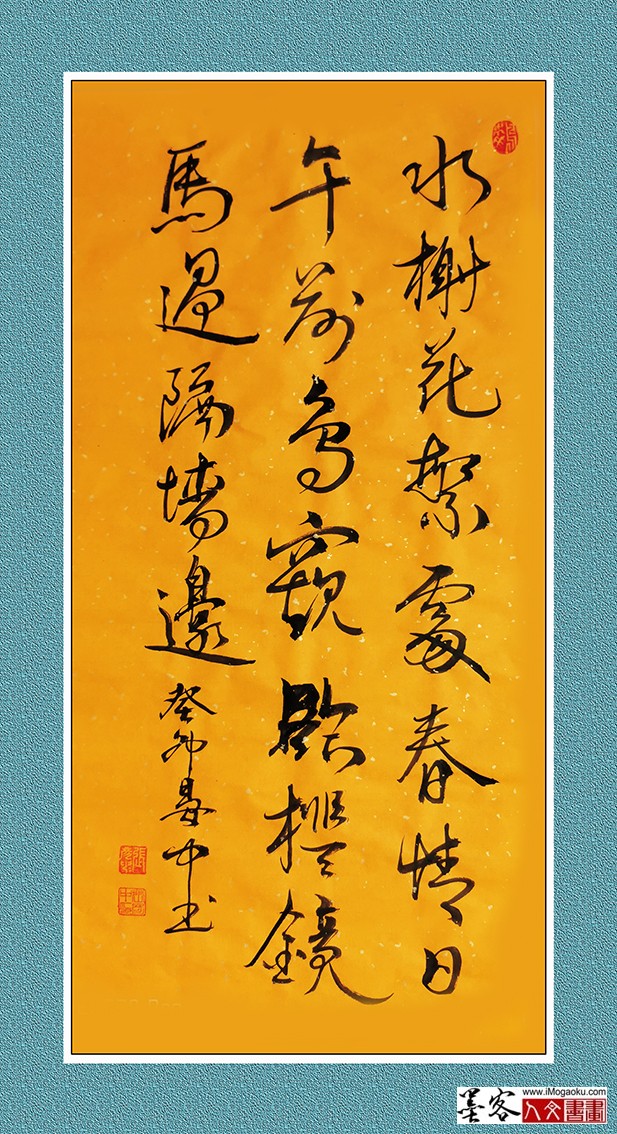 水榭花繁處春晴日
午前鳥窺臨檻鏡
馬過隔墻邊
癸卯 中书
墨客
www.iMogaoku.com
人文書畫